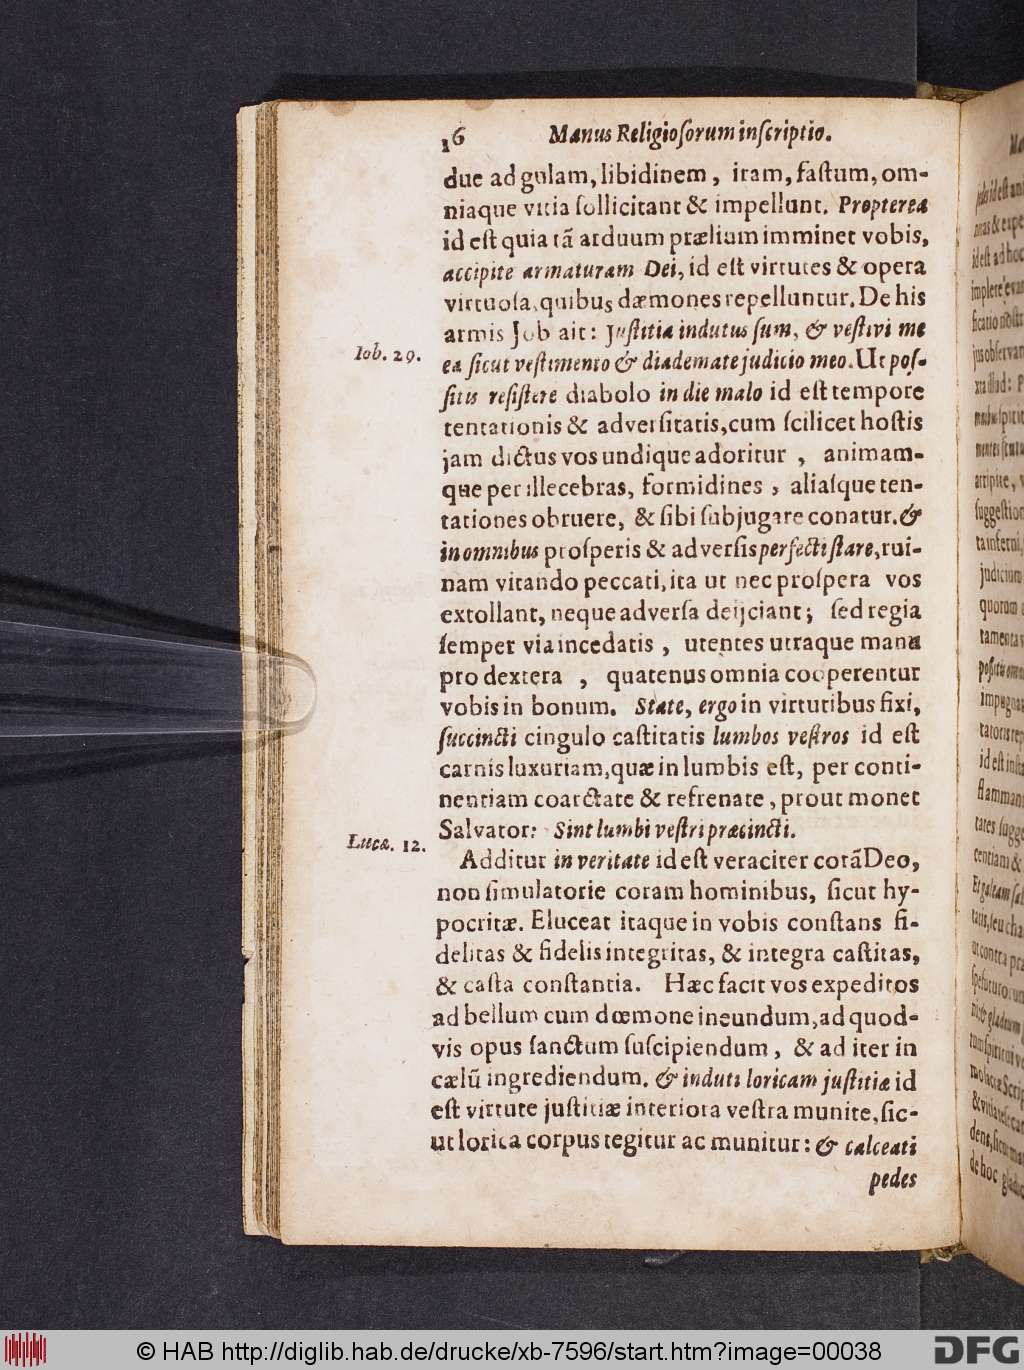 16 Manus Religioſorum inſcriptio.
due ad gulam, libidinem, iram, faſtum, om-
niaque vitia ſollicitant & impellunt. Propterea
id eſt quia tã arduum prælium imminet vobis,
accipite armaturam Dei, id eſt virtutes & opera
virtuoſa, quibus dæmones repelluntur. De his
armis Job ait: Juſtitia indutus ſum, & veſtivi me
Iob. 29.
ea ſicut veſtimento & diademate judicio meo. Ut poſ-
ſitis reſiſtere diabolo in die malo id eſt tempore
tentationis & adverſitatis, cum ſcilicet hoſtis
jam dictus vos undique adoritur, animam-
que per illecebras, formidines, aliaſque ten-
tationes obruere, & ſibi ſubjugare conatur. &
in omnibus proſperis & adverſis perfecti ſtare, rui-
nam vitando peccati, ita ut nec proſpera vos
extollant, neque adverſa deijciant; ſed regia
ſemper via incedatis, utentes utraque manu
pro dextera, quatenus omnia cooperentur
vobis in bonum. State, ergo in virtutibus fixi,
ſuccincti cingulo caſtitatis lumbos veſtros id eſt
carnis luxuriam, quæ in lumbis eſt, per conti-
nentiam coarctate & refrenate, prout monet
Salvator: Sint lumbi veſtri præcincti.
Lucæ. 12.
Additur in veritate id eſt veraciter corã Deo,
non ſimulatorie coram hominibus, ſicut hy-
pocritæ. Eluceat itaque in vobis conſtans fi-
delitas & fidelis integritas, & integra caſtitas,
& caſta conſtantia. Hæc facit vos expeditos
ad bellum cum dœmone ineundum, ad quod-
vis opus ſanctum ſuſcipiendum, & ad iter in
cælũ ingrediendum. & induti loricam juſtitiæ id
eſt virtute juſtitiæ interiora veſtra munite, ſic-
ut lorica corpus tegitur ac munitur: & calceati
pedes
© HAB http://diglib.hab.de/drucke/xb-7596/start.htm?image=00038
DFG